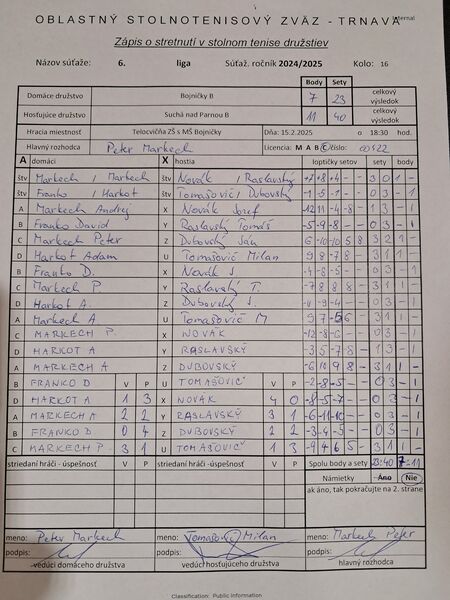 Internal
OBLASTNÝ STOLNOTENISOVÝ ZVÄZ - TRNAVA
Zápis o stretnutí v stolnom tenise družstiev
Názov súťaže: 6. liga Súťaž. ročník 2024/2025 Kolo: 16
Body Sety
Domáce družstvo Bojničky B 7 23 celkový výsledok
Hosťujúce družstvo Suchá nad Parnou B 11 40 celkový výsledok
Hracia miestnosť Telocvičňa ZŠ s MŠ Bojničky Dňa: 15.2.2025 o 18:30 hod.
Hlavný rozhodca Peter Markech Licencia: M A B C číslo:
A domáci X hostia loptičky setov sety body
štv Markech / Markech štv Novák / Raslavský 3 0 1 -
štv Franko / Harkot štv Tomašovič / Dubovský 0 3 - 1
A Markech Andrej X Novák Jozef 1 3 - 1
B Franko David Y Raslavský Tomáš -5 -9 -8 - - 0 3 - 1
C Markech Peter Z Dubovský Ján 6 -10 -10 5 8 3 2 1 -
D Harkot Adam U Tomašovič Milan
B Franko D. X Novák J. -4 -8 -5 - - 0 3 - 1
C Markech P Y Raslavský T.
D Harkot A. Z Dubovský J. 0 3 - 1
A Markech A U Tomašovič M
C MARKECH P. X NOVÁK 0 3 - 1
D HARKOT A Y RASLAVSKÝ 1 3 - 1
A MARKECH A Z DUBOVSKÝ 3 1 1
B FRANKO D V P U TOMAŠOVIČ V P -2 -8 -5 - - 0 3 - 1
D HARKOT A 1 3 X NOVÁK 4 0 -8 -5 -7 - - 0 3 - 1
A MARKECH A 2 2 Y RASLAVSKÝ 3 1 -6 -11 -10 - - 0 3 - 1
B FRANKO D 0 4 Z DUBOVSKÝ 2 2 -3 -4 -5 - - 0 3 - 1
C MARKECH P. 3 1 U TOMAŠOVIČ 1 3 -9 4 6 5 3 1 1
striedaní hráči - úspešnosť V P striedaní hráči - úspešnosť V P Spolu body a sety 23:40 7:11
Námietky Áno Nie
ak áno, tak pokračujte na 2. strane
meno: Peter Markech meno: Tomašovič Milan meno: Markech Peter
podpis: podpis: podpis:
vedúci domáceho družstva vedúci hosťujúceho družstva hlavný rozhodca
Classification: Public Information